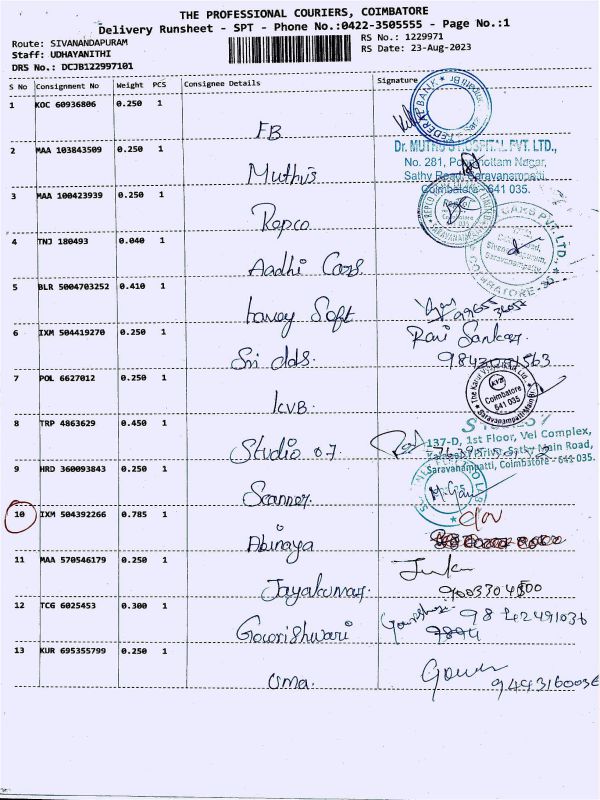 THE PROFESSIONAL COURIERS, COIMBATORE
Delivery Runsheet - SPT - Phone No.:0422-3505555 - Page No.:1
Route: SIVANANDAPURAM RS No.: 1229971
Staff: UDHAYANITHI RS Date: 23-Aug-2023
DRS No.: DCJB122997101
S No Consignment No Weight PCS Consignee Details Signature
1 KOC 60936806 0.250 1
FB
2 MAA 103843509 0.250 1
Dr. MUTHU'S HOSPITAL PVT. LTD.,
No. 281, Nagar,
Sathy Road, Saravanampatti,
Coimbatore - 641 035.
Muthu's
3 MAA 100423939 0.250 1
Repco
4 TNJ 180493 0.040 1
Aadhi Cars
5 BLR 5004703252 0.410 1
Soft
6 IXM 504419270 0.250 1
Ravi Sankar
Sri dds.
7 POL 6627012 0.250 1
Coimbatore
641 035
KVB.
8 TRP 4863629 0.450 1
137-D, 1st Floor, Vel Complex,
Sathy Main Road,
Saravanampatti, Coimbatore - 641 035.
Studio 07
9 HRD 360093843 0.250 1
Scanner
10 IXM 504392266 0.785 1
Abinaya
11 MAA 570546179 0.250 1
Jayakumar
12 TCG 6025453 0.300 1
98 42491036
Gowrishwari
13 KUR 695355799 0.250 1
Uma.